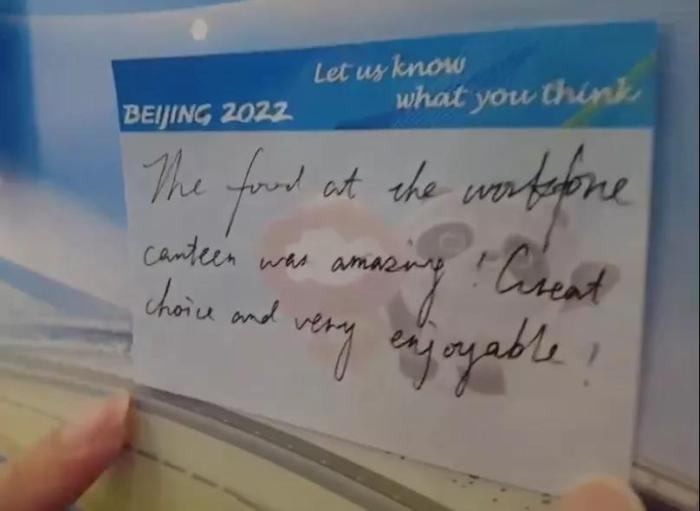 Let us know
what you think
BEIJING 2022
The food at the workforce
canteen was amazing! Great
choice and very enjoyable!